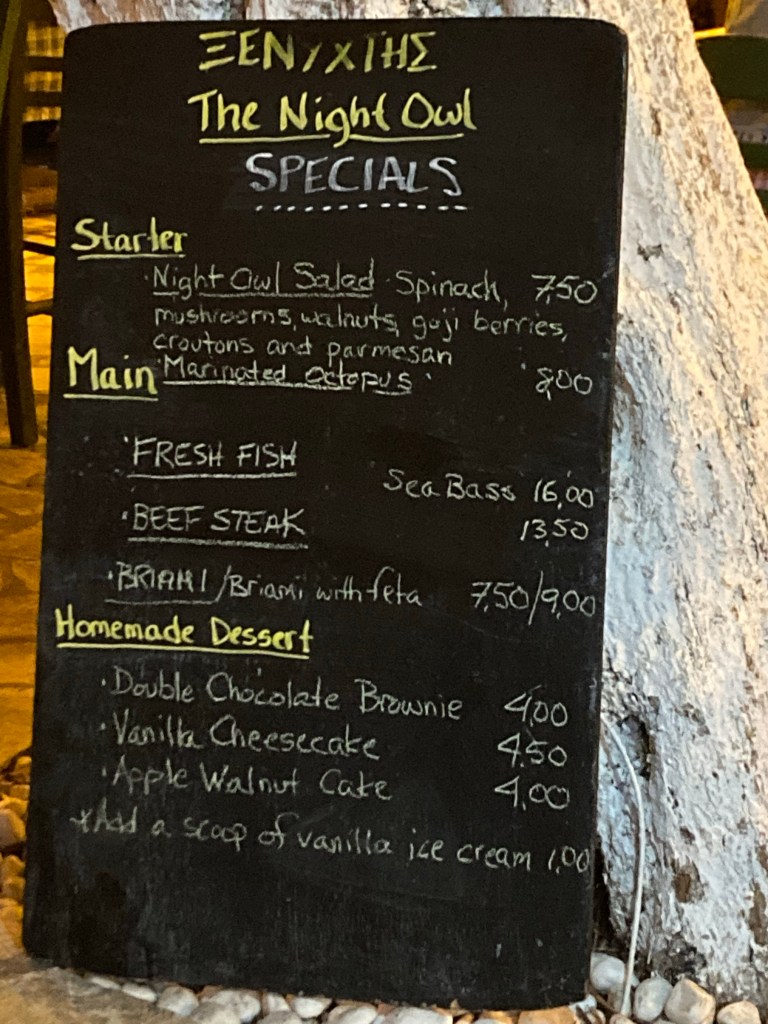 ΞΕΝΥΧΤΗΣ
The Night Owl
SPECIALS
Starter
·Night Owl Salad · Spinach, 7,50
mushrooms, walnuts, goji berries,
croutons and parmesan
Main ·Marinated Octopus· 8,00
·FRESH FISH
Sea Bass 16,00
·BEEF STEAK 13,50
·BRIAMI/Briami with feta 7,50/9,00
Homemade Dessert
·Double Chocolate Brownie 4,00
·Vanilla Cheesecake 4,50
·Apple Walnut Cake 4,00
*Add a scoop of vanilla ice cream 1,00